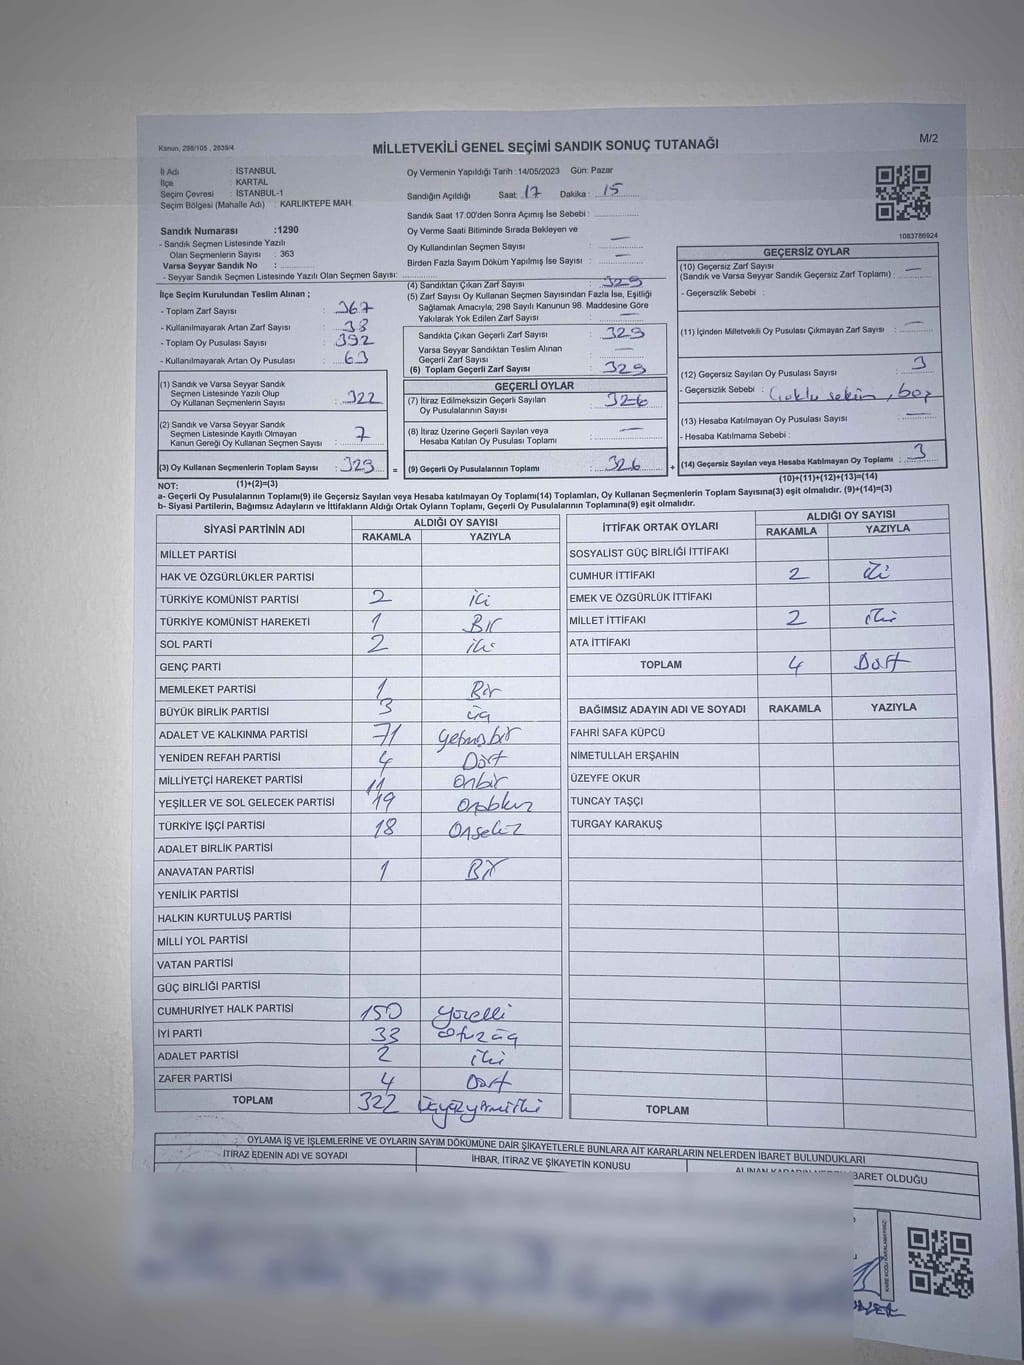 Kanun, 298/105 , 2839/4
M/2
MİLLETVEKİLİ GENEL SEÇİMİ SANDIK SONUÇ TUTANAĞI
İl Adı : İSTANBUL
İlçe : KARTAL
Seçim Çevresi : İSTANBUL-1
Seçim Bölgesi (Mahalle Adı) : KARLIKTEPE MAH.
Oy Vermenin Yapıldığı Tarih : 14/05/2023 Gün: Pazar
Sandığın Açıldığı Saat: 17 Dakika : 15
Sandık Saat 17.00'den Sonra Açımış İse Sebebi :
Oy Verme Saati Bitiminde Sırada Bekleyen ve
Oy Kullandırılan Seçmen Sayısı : —
Birden Fazla Sayım Döküm Yapılmış İse Sayısı : —
1083786924
Sandık Numarası :1290
- Sandık Seçmen Listesinde Yazılı
Olan Seçmenlerin Sayısı : 363
Varsa Seyyar Sandık No :
- Seyyar Sandık Seçmen Listesinde Yazılı Olan Seçmen Sayısı:
İlçe Seçim Kurulundan Teslim Alınan ;
- Toplam Zarf Sayısı : 367
- Kullanılmayarak Artan Zarf Sayısı : 38
- Toplam Oy Pusulası Sayısı : 392
- Kullanılmayarak Artan Oy Pusulası : 63
(1) Sandık ve Varsa Seyyar Sandık
Seçmen Listesinde Yazılı Olup
Oy Kullanan Seçmenlerin Sayısı : 322
(2) Sandık ve Varsa Seyyar Sandık
Seçmen Listesinde Kayıtlı Olmayan
Kanun Gereği Oy Kullanan Seçmen Sayısı : 7
(3) Oy Kullanan Seçmenlerin Toplam Sayısı : 329 =
(1)+(2)=(3)
(4) Sandıktan Çıkan Zarf Sayısı : 329
(5) Zarf Sayısı Oy Kullanan Seçmen Sayısından Fazla İse, Eşitliği
Sağlamak Amacıyla, 298 Sayılı Kanunun 98. Maddesine Göre
Yakılarak Yok Edilen Zarf Sayısı : —
Sandıkta Çıkan Geçerli Zarf Sayısı : 329
Varsa Seyyar Sandıktan Teslim Alınan
Geçerli Zarf Sayısı : —
(6) Toplam Geçerli Zarf Sayısı : 329
GEÇERLİ OYLAR
(7) İtiraz Edilmeksizin Geçerli Sayılan
Oy Pusulalarının Sayısı : 326
(8) İtiraz Üzerine Geçerli Sayılan veya
Hesaba Katılan Oy Pusulası Toplamı : —
(9) Geçerli Oy Pusulalarının Toplamı : 326 +
GEÇERSİZ OYLAR
(10) Geçersiz Zarf Sayısı
(Sandık ve Varsa Seyyar Sandık Geçersiz Zarf Toplamı) : —
- Geçersizlik Sebebi :
(11) İçinden Milletvekili Oy Pusulası Çıkmayan Zarf Sayısı : —
(12) Geçersiz Sayılan Oy Pusulası Sayısı : 3
- Geçersizlik Sebebi : Çoklu seçim, boş
(13) Hesaba Katılmayan Oy Pusulası Sayısı : —
- Hesaba Katılmama Sebebi :
(14) Geçersiz Sayılan veya Hesaba Katılmayan Oy Toplamı : 3
(10)+(11)+(12)+(13)=(14)
NOT:
a- Geçerli Oy Pusulalarının Toplamı(9) ile Geçersiz Sayılan veya Hesaba katılmayan Oy Toplamı(14) Toplamları, Oy Kullanan Seçmenlerin Toplam Sayısına(3) eşit olmalıdır. (9)+(14)=(3)
b- Siyasi Partilerin, Bağımsız Adayların ve İttifakların Aldığı Ortak Oyların Toplamı, Geçerli Oy Pusulalarının Toplamına(9) eşit olmalıdır.
SİYASİ PARTİNİN ADI ALDIĞI OY SAYISI
RAKAMLA YAZIYLA
MİLLET PARTİSİ
HAK VE ÖZGÜRLÜKLER PARTİSİ
TÜRKİYE KOMÜNİST PARTİSİ 2 iki
TÜRKİYE KOMÜNİST HAREKETİ 1 Bir
SOL PARTİ 2 iki
GENÇ PARTİ
MEMLEKET PARTİSİ 1 Bir
BÜYÜK BİRLİK PARTİSİ 3 üç
ADALET VE KALKINMA PARTİSİ 71 Yetmişbir
YENİDEN REFAH PARTİSİ 4 Dört
MİLLİYETÇİ HAREKET PARTİSİ 11 Onbir
YEŞİLLER VE SOL GELECEK PARTİSİ 19 Ondokuz
TÜRKİYE İŞÇİ PARTİSİ 18 Onsekiz
ADALET BİRLİK PARTİSİ
ANAVATAN PARTİSİ 1 Bir
YENİLİK PARTİSİ
HALKIN KURTULUŞ PARTİSİ
MİLLİ YOL PARTİSİ
VATAN PARTİSİ
GÜÇ BİRLİĞİ PARTİSİ
CUMHURİYET HALK PARTİSİ 150 Yüzelli
İYİ PARTİ 33 Otuzüç
ADALET PARTİSİ 2 iki
ZAFER PARTİSİ 4 Dört
TOPLAM 322 Üçyüzyirmiiki
İTTİFAK ORTAK OYLARI ALDIĞI OY SAYISI
RAKAMLA YAZIYLA
SOSYALİST GÜÇ BİRLİĞİ İTTİFAKI
CUMHUR İTTİFAKI 2 iki
EMEK VE ÖZGÜRLÜK İTTİFAKI
MİLLET İTTİFAKI 2 iki
ATA İTTİFAKI
TOPLAM 4 Dört
BAĞIMSIZ ADAYIN ADI VE SOYADI RAKAMLA YAZIYLA
FAHRİ SAFA KÜPCÜ
NİMETULLAH ERŞAHİN
ÜZEYFE OKUR
TUNCAY TAŞÇI
TURGAY KARAKUŞ
TOPLAM
OYLAMA İŞ VE İŞLEMLERİNE VE OYLARIN SAYIM DÖKÜMÜNE DAİR ŞİKAYETLERLE BUNLARA AİT KARARLARIN NELERDEN İBARET BULUNDUKLARI
İTİRAZ EDENİN ADI VE SOYADI İHBAR, İTİRAZ VE ŞİKAYETİN KONUSU ALINAN KARARIN NEDEN İBARET OLDUĞU